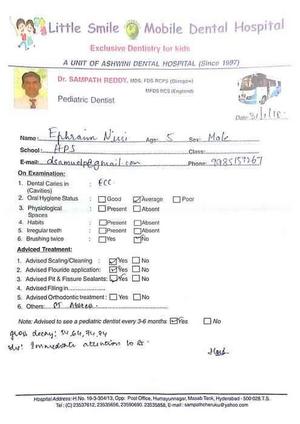 Little Smile Mobile Dental Hospital
Exclusive Dentistry for kids
A UNIT OF ASHWINI DENTAL HOSPITAL (Since 1997)
Dr. SAMPATH REDDY, MDS, FDS RCPS (Glasgow)
MFDS RCS (England)
Pediatric Dentist
Date:
Name: Ephraim Age: 5 Sex: Male
School: APS Class:
E-mail: dsamuelp@gmail.com Phone: 9985157267
On Examination:
1. Dental Caries in : ECC
(Cavities)
2. Oral Hygiene Status : Good Average Poor
3. Physiological : Present Absent
Spaces
4. Habits : Present Absent
5. Irregular teeth : Present Absent
6. Brushing twice : Yes No
Adviced Treatment:
1. Advised Scaling/Cleaning : Yes No
2. Advised Flouride application: Yes No
3. Advised Pit & Fissure Sealants: Yes No
4. Advised Filling in
5. Advised Orthodontic treatment : Yes No
6. Others:
Note: Advised to see a pediatric dentist every 3-6 months Yes No
gross decay: 54, 64, 74, 84
Immediate attention to
Hospital Address: H.No. 10-3-304/13, Opp. Post Office, Humayunnagar, Masab Tank, Hyderabad - 500 028.T.S.
Tel: (C) 23537612, 23535656, 23590690. 23535858, E-mail: sampathcheruku@yahoo.com